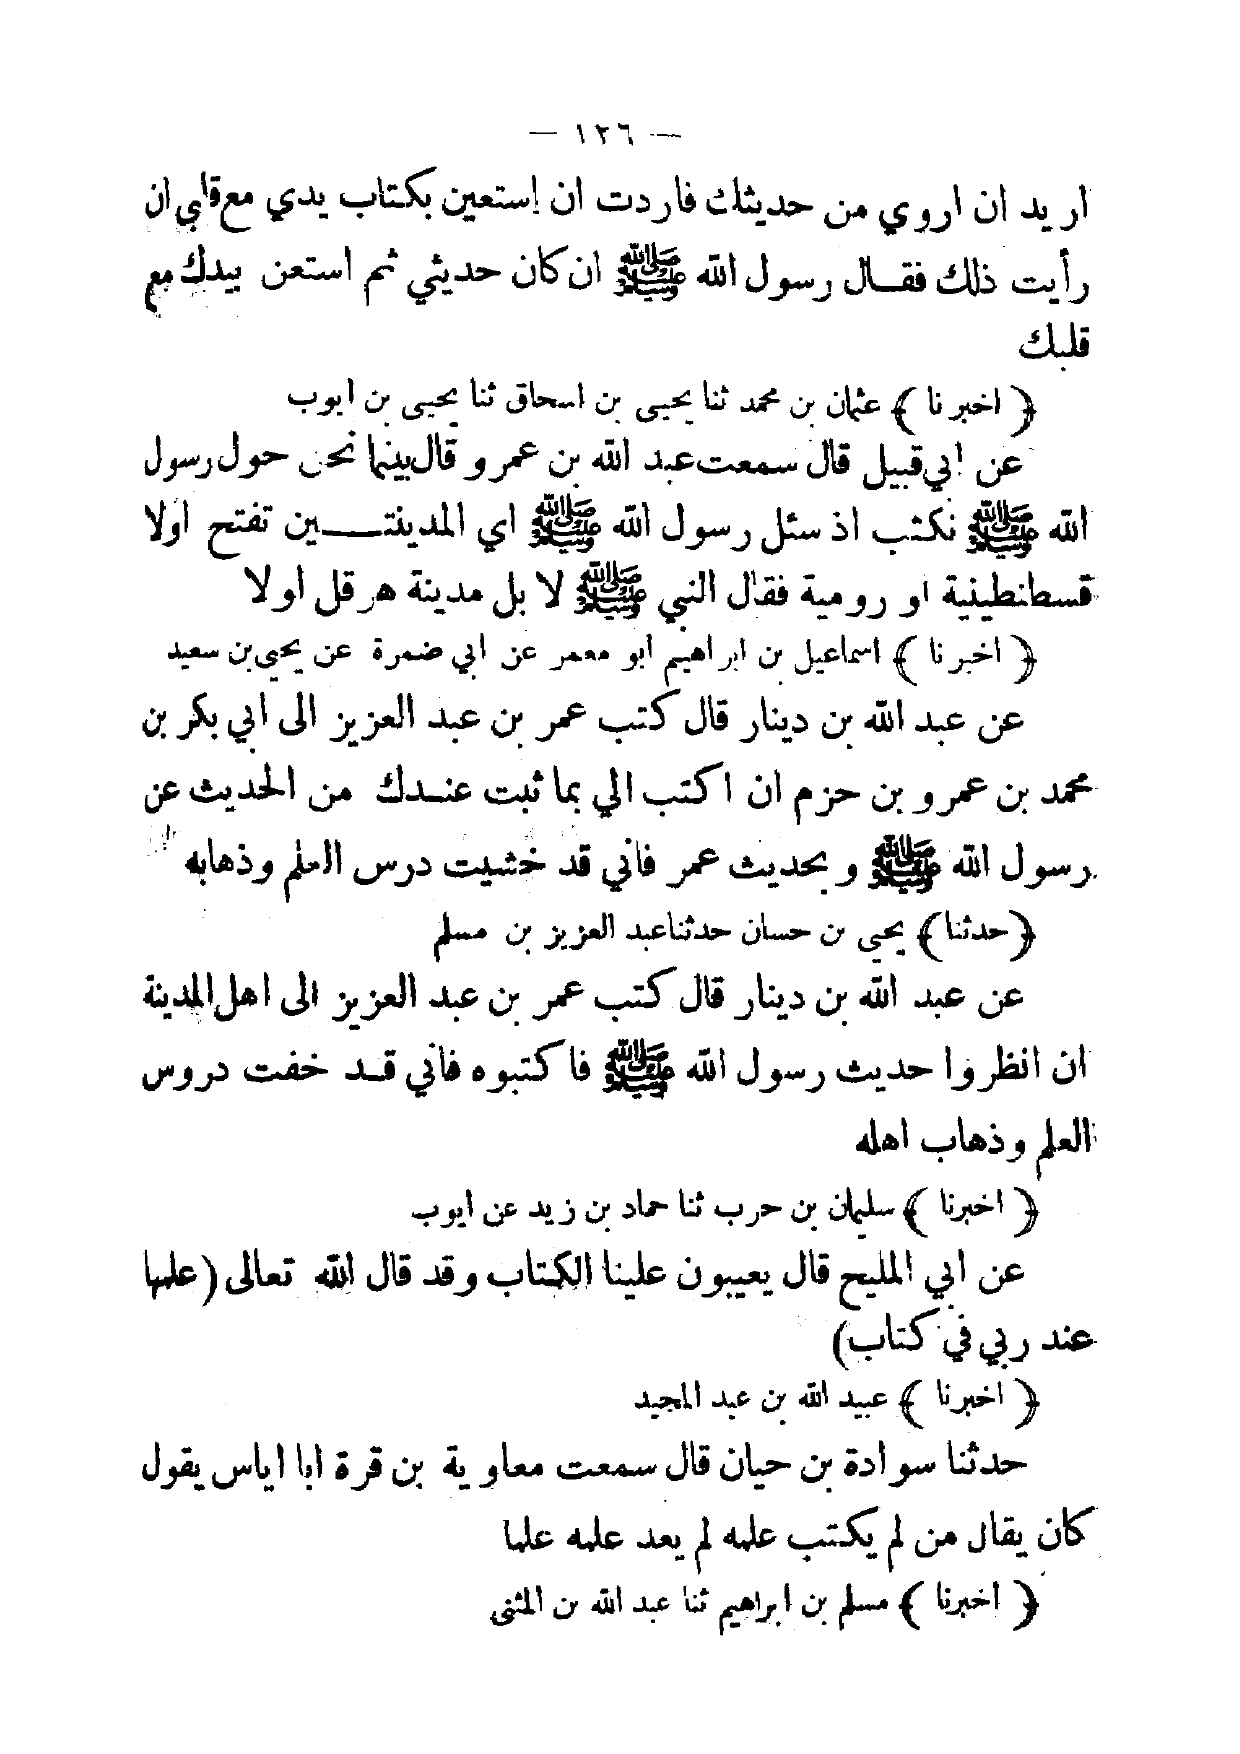 — ١٢٦ —
اريد ان اروي من حديثك فاردت ان إستعين بكتاب يدي مع قلبي ان
رأيت ذلك فقال رسول الله ﷺ ان كان حديثي ثم استعن بيدك مع
قلبك
﴿ اخبرنا ﴾ عثمان بن محمد ثنا يحيى بن اسحاق ثنا يحيى بن ايوب
عن ابي قبيل قال سمعت عبد الله بن عمرو قال بينما نحن حول رسول
الله ﷺ نكتب اذ سئل رسول الله ﷺ اي المدينتين تفتح اولا
قسطنطينية او رومية فقال النبي ﷺ لا بل مدينة هرقل اولا
﴿ اخبرنا ﴾ اسماعيل بن ابراهيم ابو معمر عن ابي ضمرة عن يحيى بن سعيد
عن عبد الله بن دينار قال كتب عمر بن عبد العزيز الى ابي بكر بن
محمد بن عمرو بن حزم ان اكتب الي بما ثبت عندك من الحديث عن
رسول الله ﷺ و بحديث عمر فاني قد خشيت درس العلم وذهابه
﴿حدثنا﴾ يحيى بن حسان حدثنا عبد العزيز بن مسلم
عن عبد الله بن دينار قال كتب عمر بن عبد العزيز الى اهل المدينة
ان انظروا حديث رسول الله ﷺ فاكتبوه فاني قد خفت دروس
العلم وذهاب اهله
﴿ اخبرنا ﴾ سليمان بن حرب ثنا حماد بن زيد عن ايوب
عن ابي المليح قال يعيبون علينا الكتاب وقد قال الله تعالى (علمها
عند ربي في كتاب)
﴿ اخبرنا ﴾ عبيد الله بن عبد المجيد
حدثنا سوادة بن حيان قال سمعت معاوية بن قرة ابا اياس يقول
كان يقال من لم يكتب علمه لم يعد علمه علما
﴿ اخبرنا ﴾ مسلم بن ابراهيم ثنا عبد الله بن المثنى